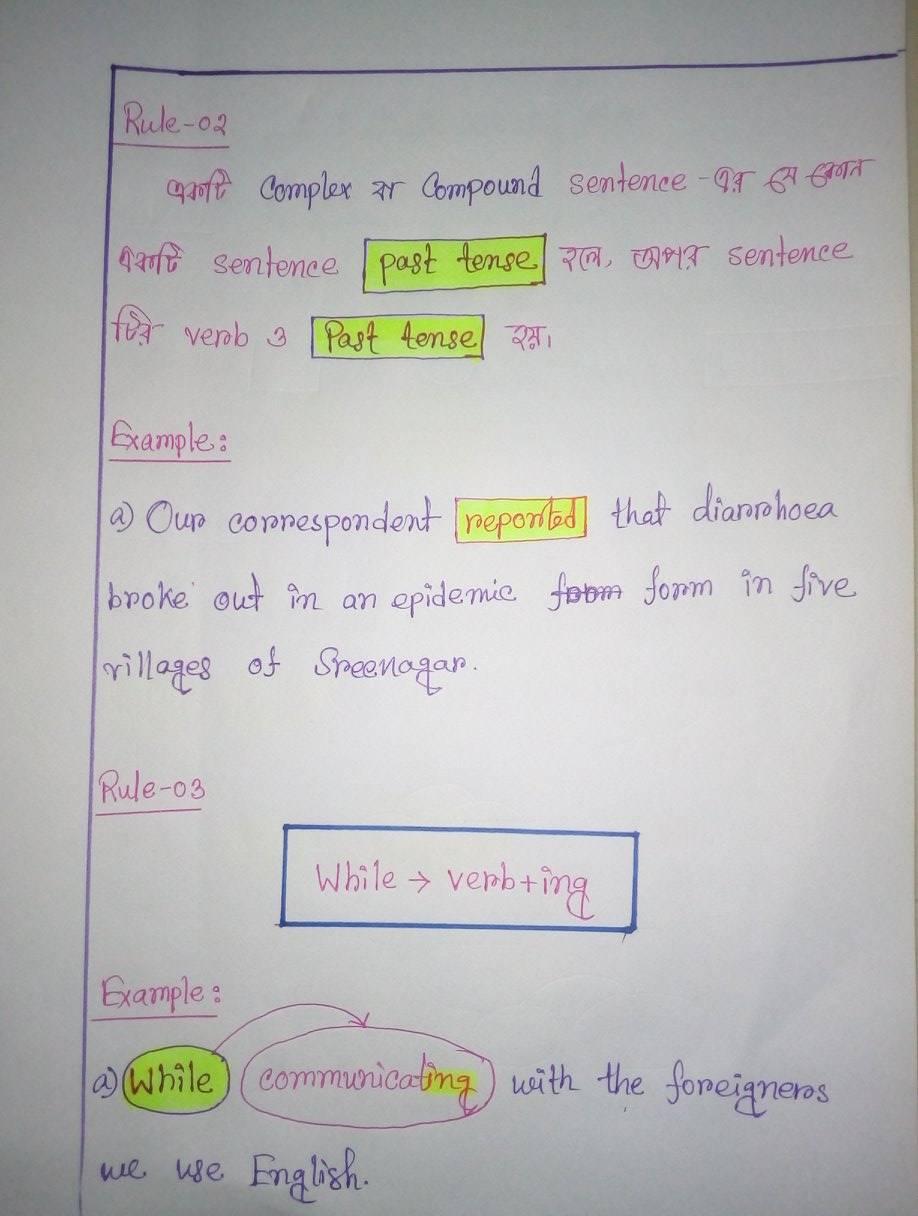 Rule-02
একটি Complex বা Compound sentence -এর যে কোন
একটি sentence past tense হলে, অপর sentence
টির verb ও Past tense হয়।
Example:
a) Our correspondent reported that diarrhoea
broke out in an epidemic form form in five
villages of Sreenagar.
Rule-03
While → verb+ing
Example:
a) While communicating with the foreigners
we use English.